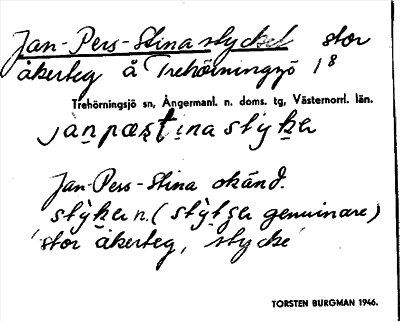 Jan-Pers-Stina stycket stor
åkerteg å Trehörningsjö 1⁸
Trehörningsjö sn, Ångermanl. n. doms. tg, Västernorrl. län.
Jan-Pers-Stina okänd.
n. ( genuinare)
'stor åkerteg, stycke'
TORSTEN BURGMAN 1946.